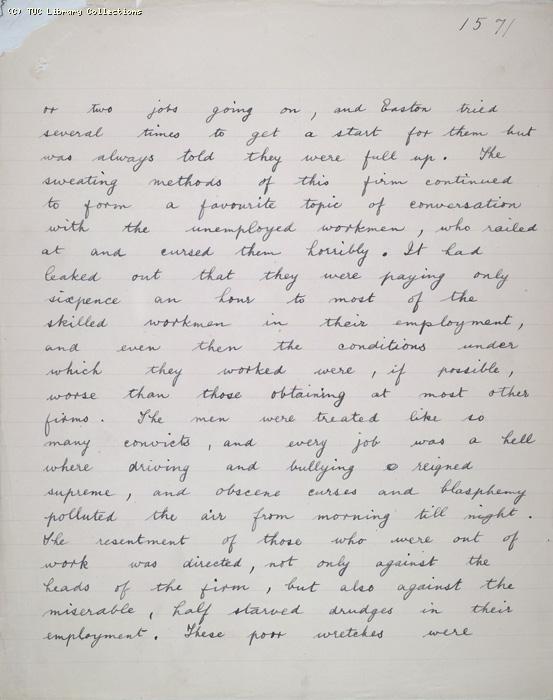 (C) TUC Library Collections
1571
or two jobs going on, and Easton tried
several times to get a start for them but
was always told they were full up. The
sweating methods of this firm continued
to form a favourite topic of conversation
with the unemployed workmen, who railed
at and cursed them horribly. It had
leaked out that they were paying only
sixpence an hour to most of the
skilled workmen in their employment,
and even then the conditions under
which they worked were, if possible,
worse than those obtaining at most other
firms. The men were treated like so
many convicts, and every job was a hell
where driving and bullying reigned
supreme, and obscene curses and blasphemy
polluted the air from morning till night.
The resentment of those who were out of
work was directed, not only against the
heads of the firm, but also against the
miserable, half starved drudges in their
employment. These poor wretches were